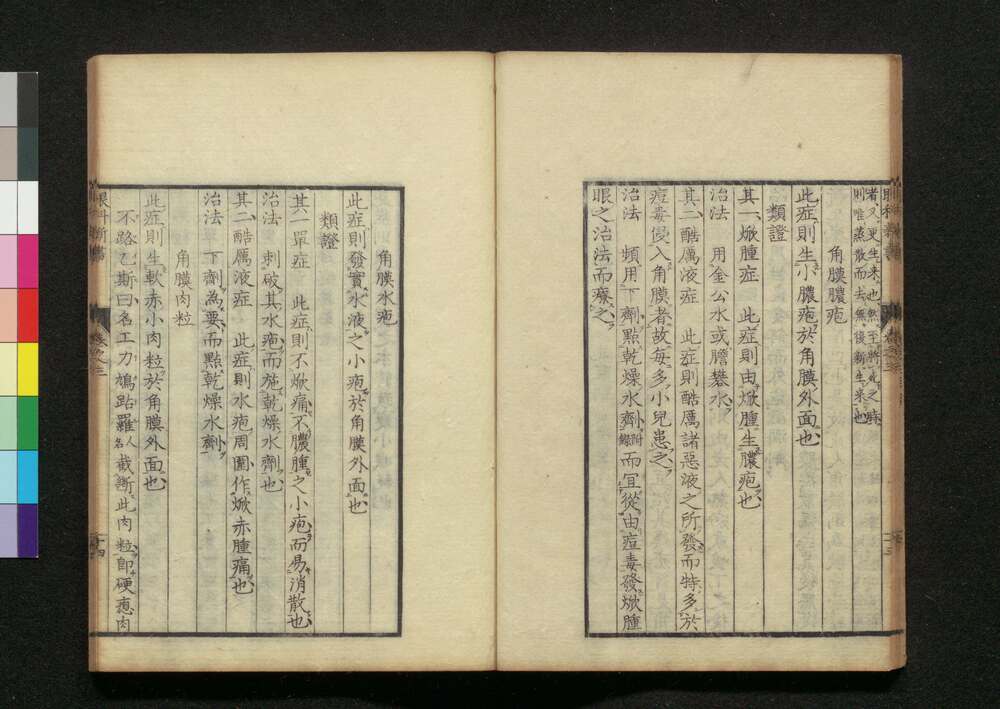 者又更生来也然至將光之時
則唯蒸散而去無後新生来也
角膜膿疱
此症則生小膿疱於角膜外面也
類證
其一焮腫症 此症則由焮腫生膿疱也
治法 用金公水或膽礬水
其二酷厲液症 此症則酷厲諸惡液之所發而特多於
痘毒侵入角膜者故每多小兒患之
治法 頻用下劑點乾燥水劑附錄而宜從由痘毒發焮腫
眼之治法而療之
角膜水疱
此症則發實水液之小疱於角膜外面也
類證
其一單症 此症則不焮痛不膿腫之小疱而易消散也
治法 刺破其水疱而施乾燥水劑也
其二酷厲液症 此症則水疱周圍作焮赤腫痛也
治法 下劑為要而點乾燥水劑
角膜肉粒
此症則生軟赤小肉粒於角膜外面也
不路乙斯曰名工力鳩跕羅人名截斷此肉粒即硬瘜肉
眼科新書 卷之三 十四